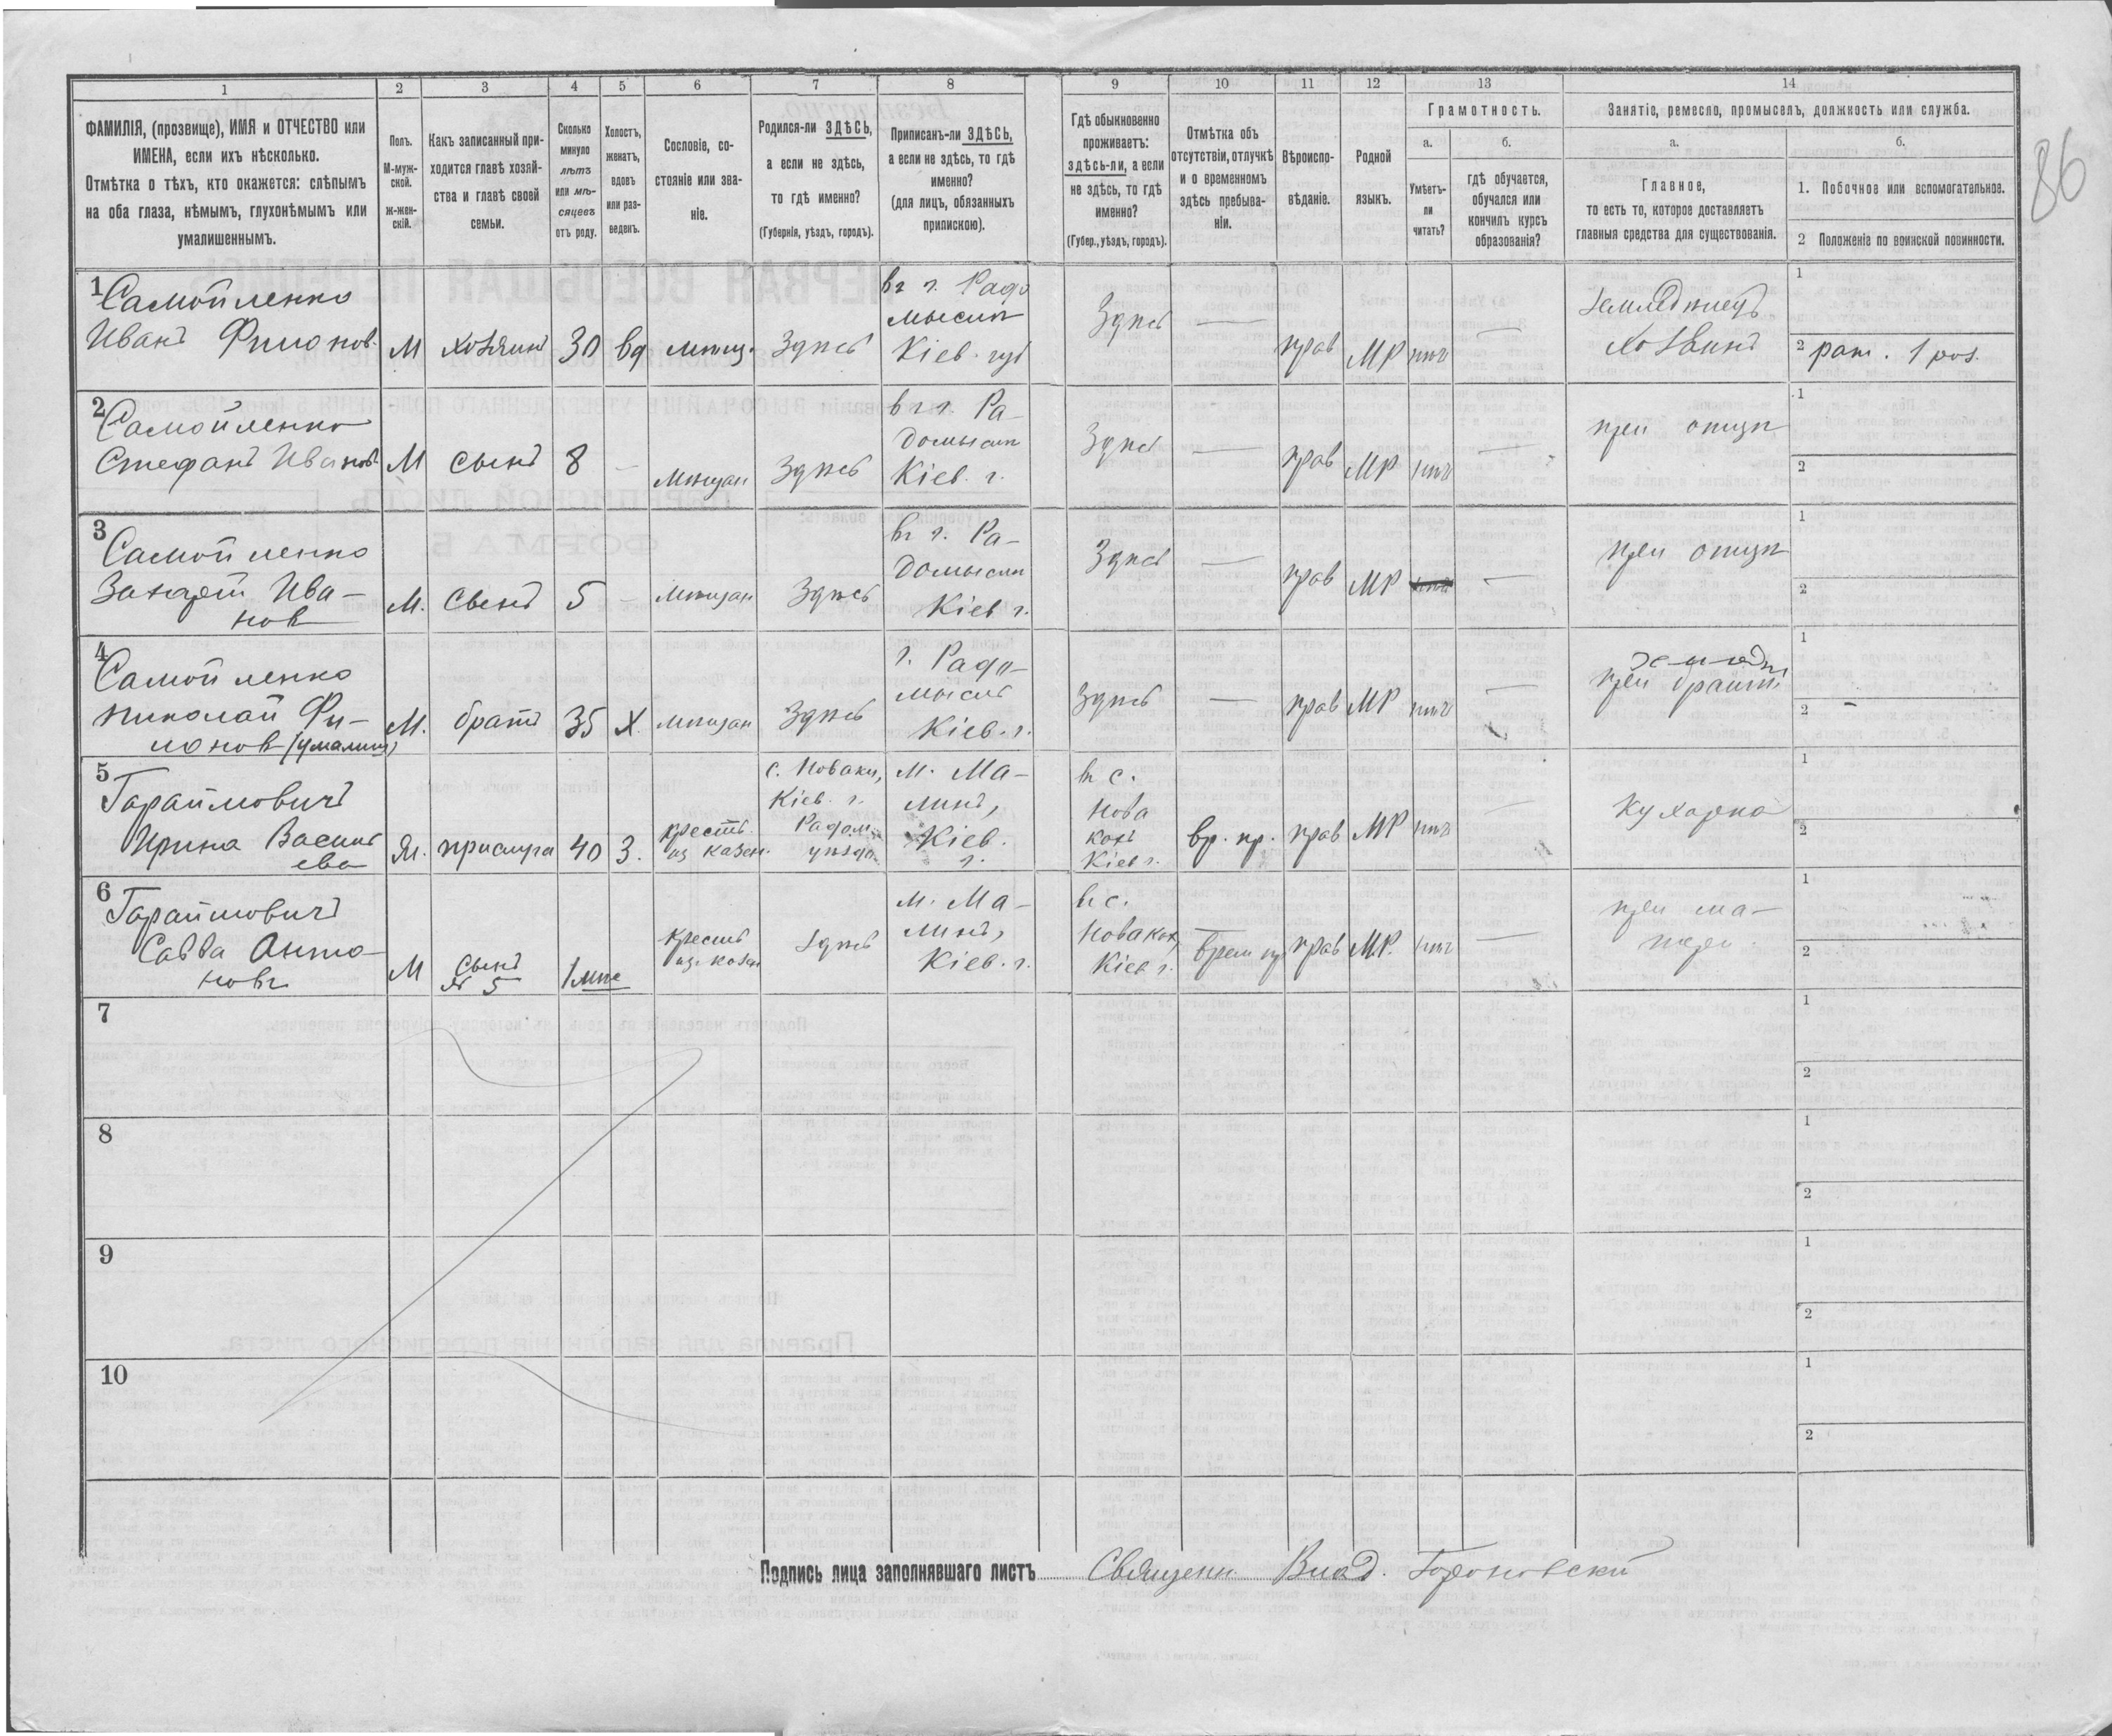 86
1 2 3 4 5 6 7 8 9 10 11 12 13 14
ФАМИЛІЯ, (прозвище), ИМЯ и ОТЧЕСТВО или
ИМЕНА, если ихъ нѣсколько.
Отмѣтка о тѣхъ, кто окажется: слѣпымъ
на оба глаза, нѣмымъ, глухонѣмымъ или
умалишеннымъ.
Полъ.
М-муж-
ской.
ж-жен-
скій.
Какъ записанный при-
ходится главѣ хозяй-
ства и главѣ своей
семьи.
Сколько
минуло
лѣтъ
или мѣ-
сяцевъ
отъ роду.
Холостъ,
женатъ,
вдовъ
или раз-
веденъ.
Сословіе, со-
стояніе или зва-
ніе.
Родился-ли ЗДѢСЬ,
а если не здѣсь,
то гдѣ именно?
(Губернія, уѣздъ, городъ).
Приписанъ-ли ЗДѢСЬ,
а если не здѣсь, то гдѣ
именно?
(для лицъ, обязанныхъ
припискою).
Гдѣ обыкновенно
проживаетъ:
здѣсь-ли, а если
не здѣсь, то гдѣ
именно?
(Губер., уѣздъ, городъ).
Отмѣтка объ
отсутствіи, отлучкѣ
и о временномъ
здѣсь пребыва-
ніи.
Вѣроиспо-
вѣданіе.
Родной
языкъ.
Грамотность.
а.
Умѣетъ-
ли
читать?
б.
гдѣ обучается,
обучался или
кончилъ курсъ
образованія?
Занятіе, ремесло, промыселъ, должность или служба.
а.
Главное,
то есть то, которое доставляетъ
главныя средства для существованія.
б.
1. Побочное или вспомогательное.
2 Положеніе по воинской повинности.
1 Самойленко
Иванъ Филонов.
М хозяинъ 30 вд мѣщ. Здѣсь
въ г. Радо
мыслѣ
Кіев. губ
Здѣсь — прав МР нѣт —
Земледѣлецъ
Хозяинъ
1
2 рат. 1 раз.
2 Самойленко
Стефанъ Иванов
М сынъ 8 — мѣщан Здѣсь
въ г. Ра-
домыслѣ
Кіев. г.
Здѣсь — прав МР нѣт —
при отцѣ
1
2
3 Самойленко
Захарій Ива-
нов
М. Сынъ 5 — мѣщан Здѣсь
въ г. Ра-
домыслѣ
Кіев г.
Здѣсь — прав МР нѣт —
при отцѣ
1
2
4 Самойленко
Николай Фи-
лонов (умалиш)
М. братъ 35 Х. мѣщан Здѣсь
г. Радо-
мыслѣ
Кіев. г.
Здѣсь — прав МР нѣт —
при братѣ
1
2 -
5 Гараймовичъ
Ирина Василь
ева
Ж. прислуга 40 З.
крестъ.
из казен.
с. Новаки,
Кіев. г.
Радом.
уѣзда
м. Ма-
линъ,
Кіев.
г.
въ с.
Нова
кахъ
Кіев г.
вр. пр. прав МР нѣт —
Кухарка
1
2
6 Гараймовичъ
Савва Анто-
новъ
М
сынъ
№ 5
1 мѣс
крестъ
из. казен
Здѣсь
м. Ма-
линъ,
Кіев. г.
въ с.
Новаках,
Кіев г.
врем пр прав МР. нѣт —
при ма-
тери.
1
2
7
1
2
8
1
2
9
1
2
10
1
2
Подпись лица заполнявшаго листъ Священн. Влад.